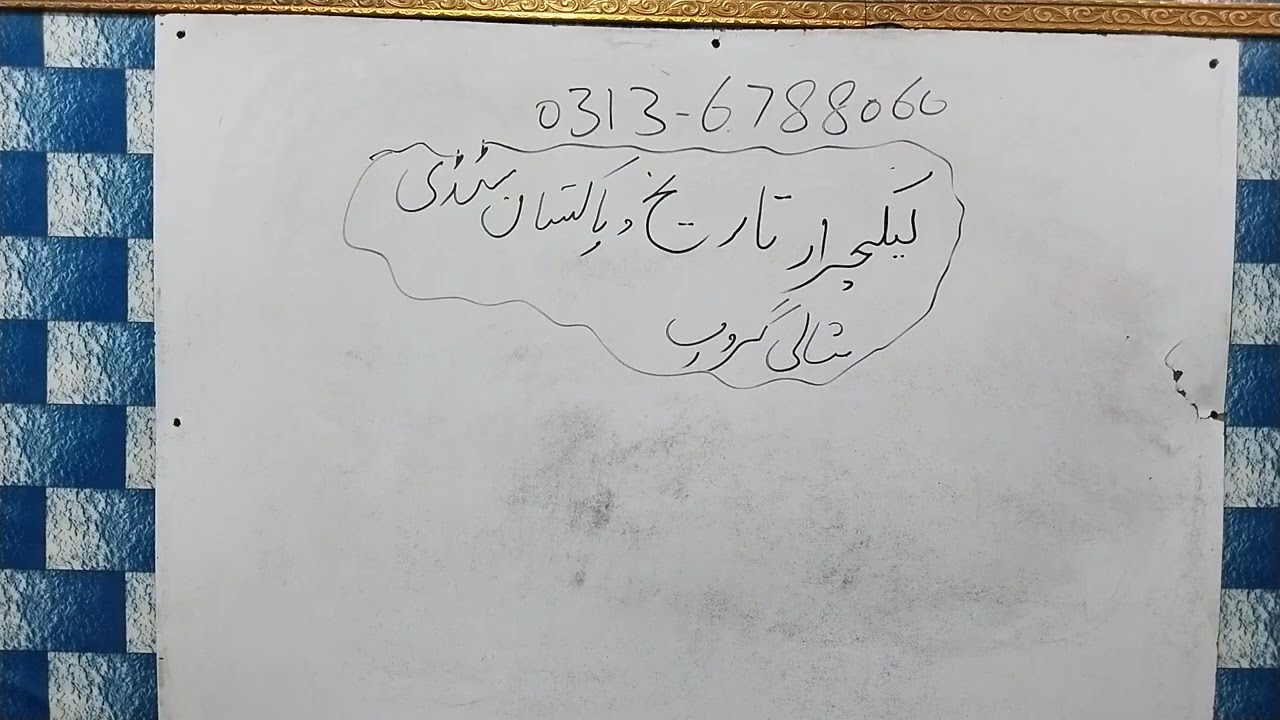 0313-6788060
لیکچرار تاریخ و پاکستان سٹڈی
مثالی گروپ